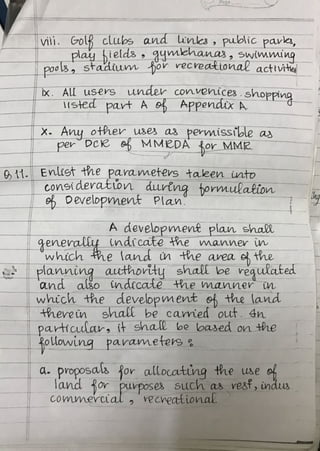 viii. Golf clubs and links, public parks,
play fields, gymkhanas, swimming
pools, stadium for recreational activities
ix. All users under convenices shopping
listed part A of Appendix A
x. Any other uses as permissible as
per DCR of MMRDA for MMR
Q.11. Enlist the parameters taken into
consideration during formulation
of Development Plan.
A development plan shall
generally indicate the manner in
which the land in the area of the
planning authority shall be regulated
and also indicate the manner in
which the development of the land
therein shall be carried out. In
particular, it shall be based on the
following parameters:
a. proposals for allocating the use of
land for purposes such as resi, indus
commercial, recreational